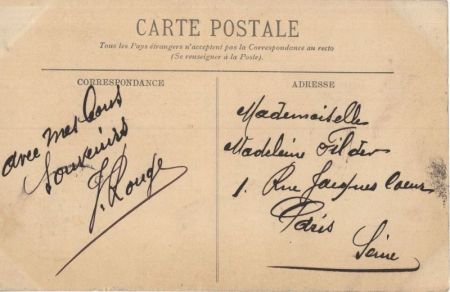 CARTE POSTALE
Tous les Pays étrangers n'acceptent pas la Correspondance au recto
(Se renseigner à la Poste).
CORRESPONDANCE
avec mes bons
souvenirs
J. Rouge
ADRESSE
Mademoiselle
Madeleine
1. Rue Jacques Coeur
Paris
Seine